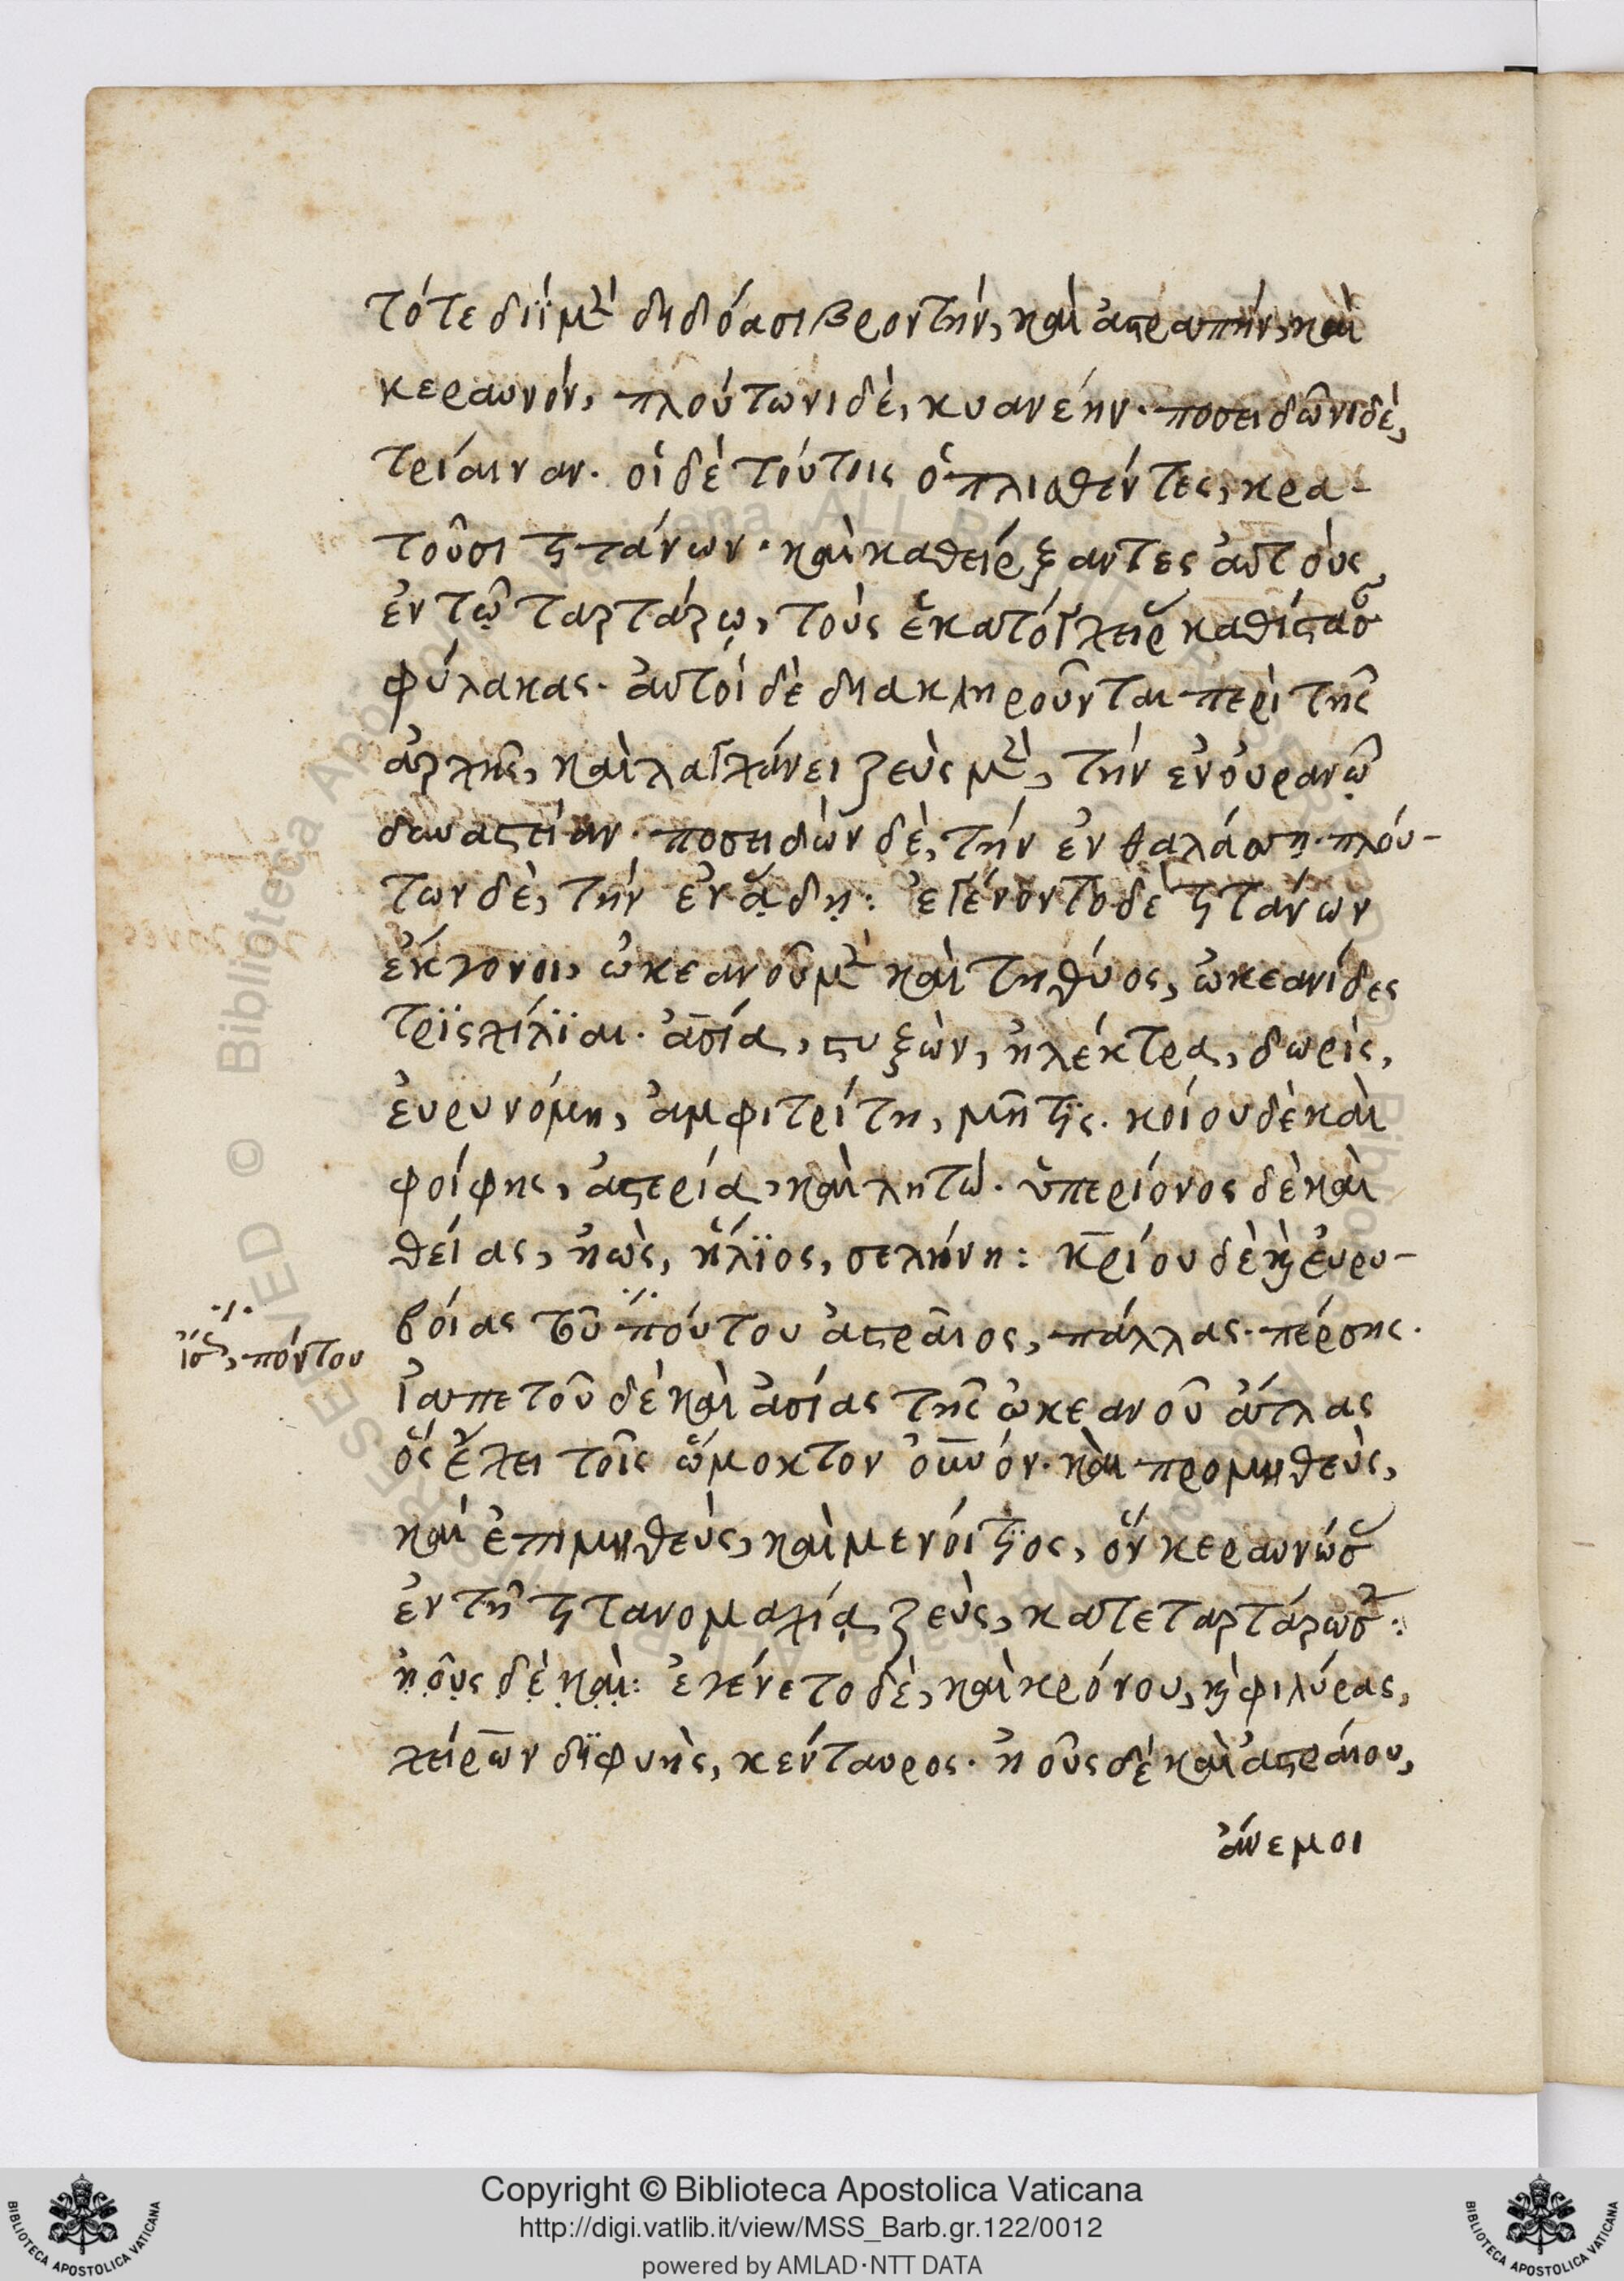 τότε διῒ μὲν διδόασι βροντὴν, καὶ ἀστραπὴν, καὶ
κεραυνόν, πλούτωνι δὲ, κυανέην· ποσειδῶνι δὲ,
τρίαιναν. οἱ δὲ τούτοις ὁπλισθέντες, κρα-
τοῦσι τιτάνων· καὶ καθείρξαντες αὐτοὺς
ἐν τῷ ταρτάρῳ, τοὺς ἑκατόγχειρας καθίστασι
φύλακας· αὐτοὶ δὲ διακληροῦνται περὶ τῆς
ἀρχῆς, καὶ λαγχάνει ζεὺς μὲν, τὴν ἐν οὐρανῷ
δυναστείαν· ποσειδῶν δὲ, τὴν ἐν θαλάσσῃ· πλού-
των δὲ, τὴν ἐν ᾅδῃ: ἐγένοντο δὲ τιτάνων
ἔκγονοι, ὠκεανοῦ μὲν καὶ τηθύος, ὠκεανίδες
τρϊςχίλϊαι· ἀσία, στυξὼν, ἠλέκτρα, δωρὶς,
ἐυρυνόμη, ἀμφιτρίτη, μῆτϊς. κοίου δὲ καὶ
φοίφης, ἀστερία, καὶ λητώ· ὑπερίονος δὲ καὶ
θείας, ἠὼς, ἥλϊος, σελήνη: κρίου δὲ καὶ ἐυρυ-
βοίας τοῦ πούτου ἀστραῖος, πάλλας· πέρσης·
ἴσως, πόντου
ἰαπετοῦ δὲ καὶ ἀσίας τῆς ὠκεανοῦ ἄτλας
ὅς ἔχει τοῖς ὤμοκτον οὐνόν· καὶ προμηθεὺς,
καὶ ἐπιμηθεὺς, καὶ μενοίτϊος, ὅν κεραυνώσας
ἐν τῇ τιτανομαχίᾳ ζεὺς, κατεταρτάρωσεν:
ἠοῦς δὲ καὶ: ἐγένετο δὲ, καὶ κρόνου, καὶ φιλύρας,
χείρων δϊφυὴς, κένταυρος· ἠοῦς δὲ καὶ ἀστραίου,
ἄνεμοι
Copyright © Biblioteca Apostolica Vaticana
http://digi.vatlib.it/view/MSS_Barb.gr.122/0012
powered by AMLAD·NTT DATA